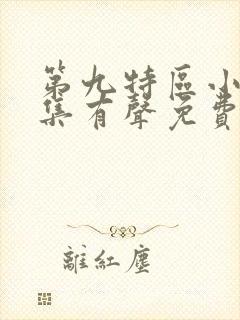 第九特區小
集有聲免費
離紅塵